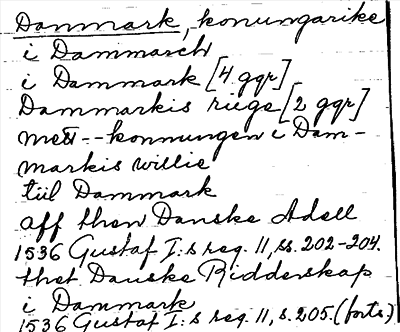 Danmark, konungarike
i Dammarch
i Dammark [4 ggr]
Dammarkis riige [2 ggr]
mett--konnungen i Dam-
markis willie
till Dammark
aff then Danske Adell
1536 Gustaf I:s reg. 11, ss. 202-204.
thet Danske Ridderskap
i Dammark
1536 Gustaf I:s reg. 11, s. 205. (forts.)